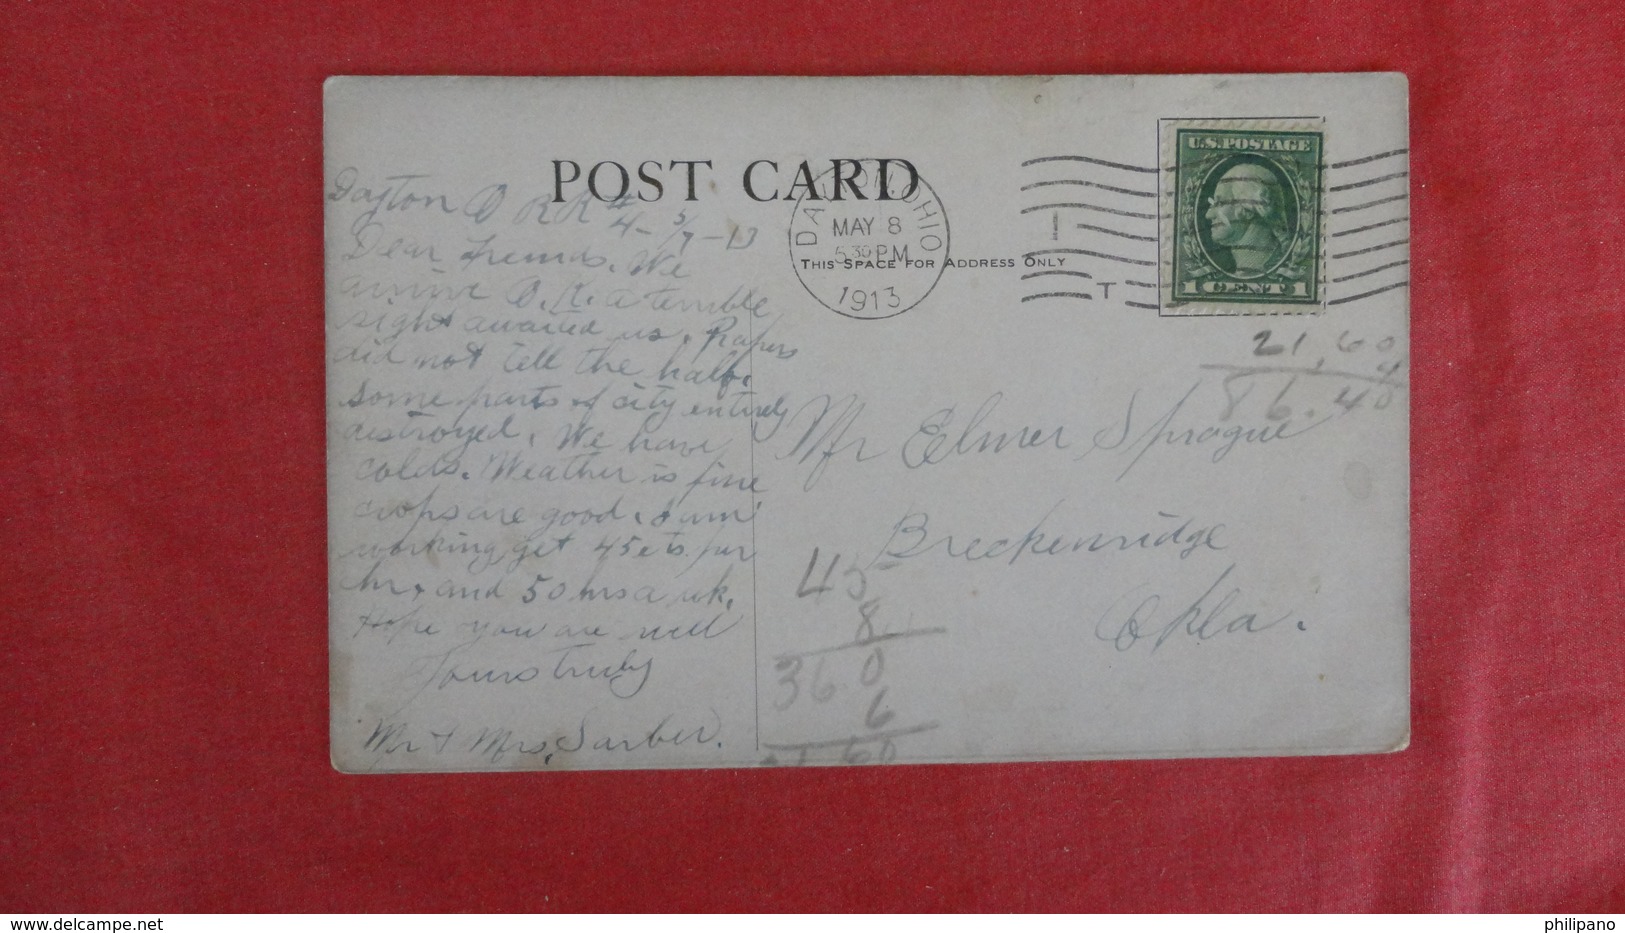 POST CARD
THIS SPACE FOR ADDRESS ONLY
DAYTON, OHIO
MAY 8
5 30 PM
1913
T
U.S. POSTAGE
1 CENT 1
Dayton O RR #4- 5/7-13
Dear friends. We
arrive O.K. a terrible
sight awaited us. Papers
did not tell the half.
some parts of city entirely
destroyed. We have
colds. Weather is fine
crops are good. I am
working get 45cts per
hr, and 50 hrs a wk.
Hope you are well
Yours truly
Mr & Mrs. Sarber.
Mr Elmer Sprague
Breckenridge
Okla.
21.60
4
86.40
45
8
360
6
21 60
philipano